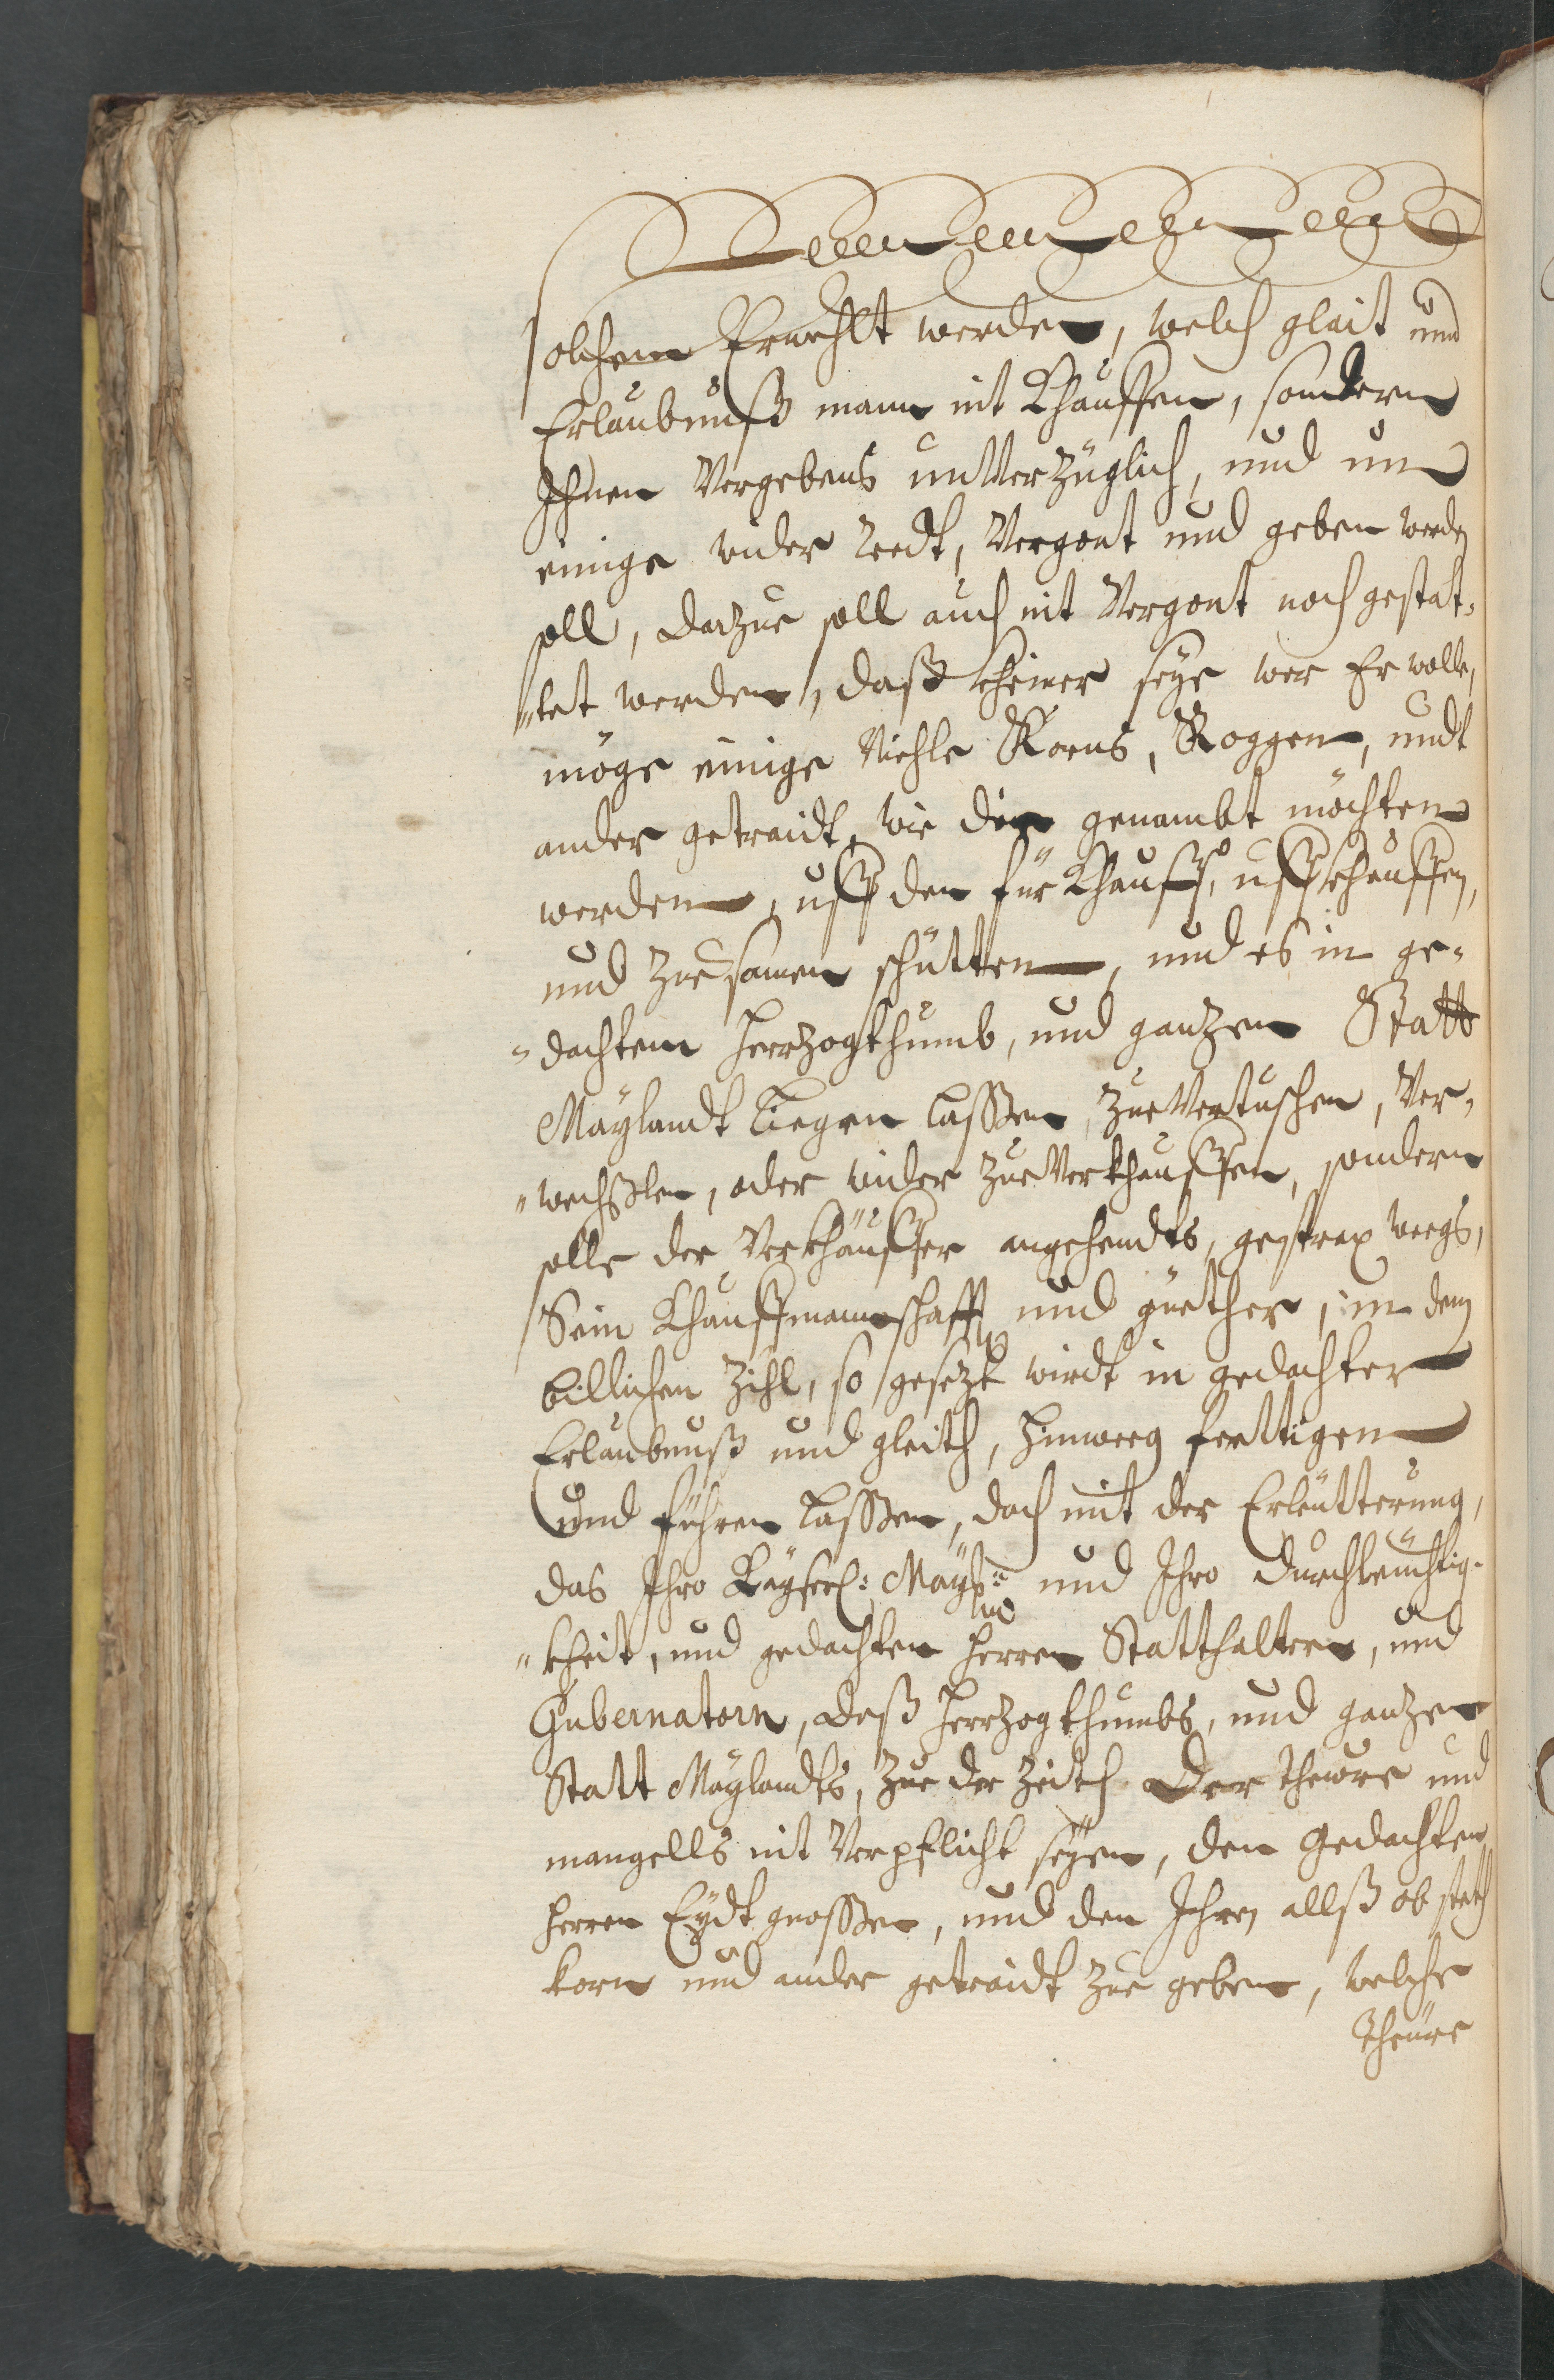 solchem Erwehlt werden, welch glait und
Erlaubnuß mann nit Khauffen, sondern
Ihnen Vergebens unVerzüglich, und um
einige wider redt, Vergont und geben werden
soll, darzue soll auch nit Vergont noch gestat-
"tet werden, daß kheiner seye wer Er wolle,
möge einige Viehle Korns, Roggen, undt
ander getraidt, wie die genambt möchten
werden, uff den für Khauff, uff khauffen,
und zuesamen schütten, und es in ge-
"dachtem Herrzogthumb, und ganzen Statt
Maylandt liegen lassen, zueVertuschen, Ver-
"wechßlen, oder wider zueVerkhauffen, sondern
solle der Verkhäuffer angehendts, gestrax weegs,
Sein Khauffmanschafft und güether, in dem
billichen Zihl, so gesezt wirdt in gedachter
Erlaubnuß und gleith, hinweeg fertigen
und führen lassen, doch mit der Erleütterung,
das Ihro Kayserl: Mayt: und Ihro Durchleüchtig-
"kheit, und gedachten Herren Statthaltern, und
Gubernatorn, deß Herrzogthumbs, und ganzen
Statt Maylandts, zue der Zeith der Theüre und
mangells nit Verpflicht seyen, den Gedachten
Herren Eydtgnossen, und den Ihren allß ob steth
korn und ander getraidt zue geben, welche
Theüre